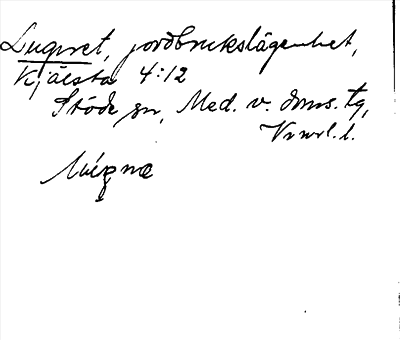 Lugnet, jordbrukslägenhet,
Kjälsta 4:12
Stöde sn, Med. v. doms. tg,
Vnrl. l.